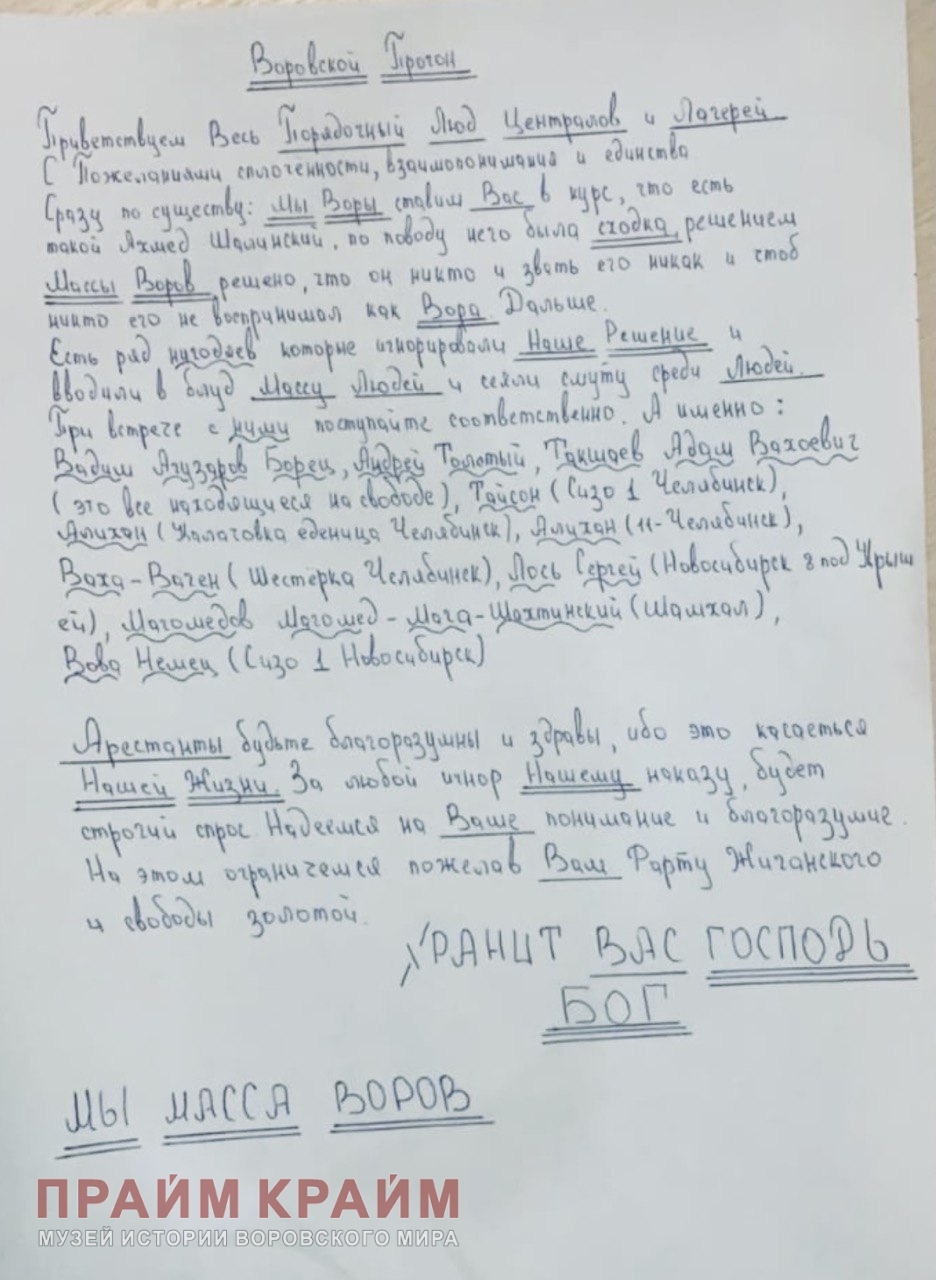 Воровской Прогон
Приветствуем Весь Порядочный Люд Централов и Лагерей
С Пожеланиями сплоченности, взаимопонимания и единства
Сразу по существу: Мы Воры ставим Вас в курс, что есть
такой Ахмед Шалинский, по поводу него была сходка, решением
Массы Воров решено, что он никто и звать его никак и чтоб
никто его не воспринимал как Вора. Дальше.
Есть ряд нугодяев которые игнорировали Наше Решение и
вводили в блуд Массу Людей и сеяли смуту среди Людей.
При встрече с ними поступайте соответственно. А именно:
Вадим Агузаров Борец, Андрей Толстый, Такшаев Адам Вахоевич
(это все находящиеся на свободе), Тайсон (Сизо 1 Челябинск),
Алихан (Калачовка еденица Челябинск), Алихан (11-Челябинск),
Ваха-Ваген (Шестёрка Челябинск), Лось Сергей (Новосибирск 8 под Крыш
ей), Магомедов Магомед-Мага-Шахтинский (Шамхал),
Вова Немец (Сизо 1 Новосибирск)
Арестанты будьте благоразумны и здравы, ибо это касаеться
Нашей Жизни. За любой игнор Нашему наказу, будет
строгий спрос. Надеемся на Ваше понимание и благоразумие.
На этом ограничемся пожелав Вам Фарту Жиганского
и свободы золотой.
ХРАНИТ ВАС ГОСПОДЬ
БОГ
МЫ МАССА ВОРОВ
ПРАЙМ КРАЙМ
МУЗЕЙ ИСТОРИИ ВОРОВСКОГО МИРА